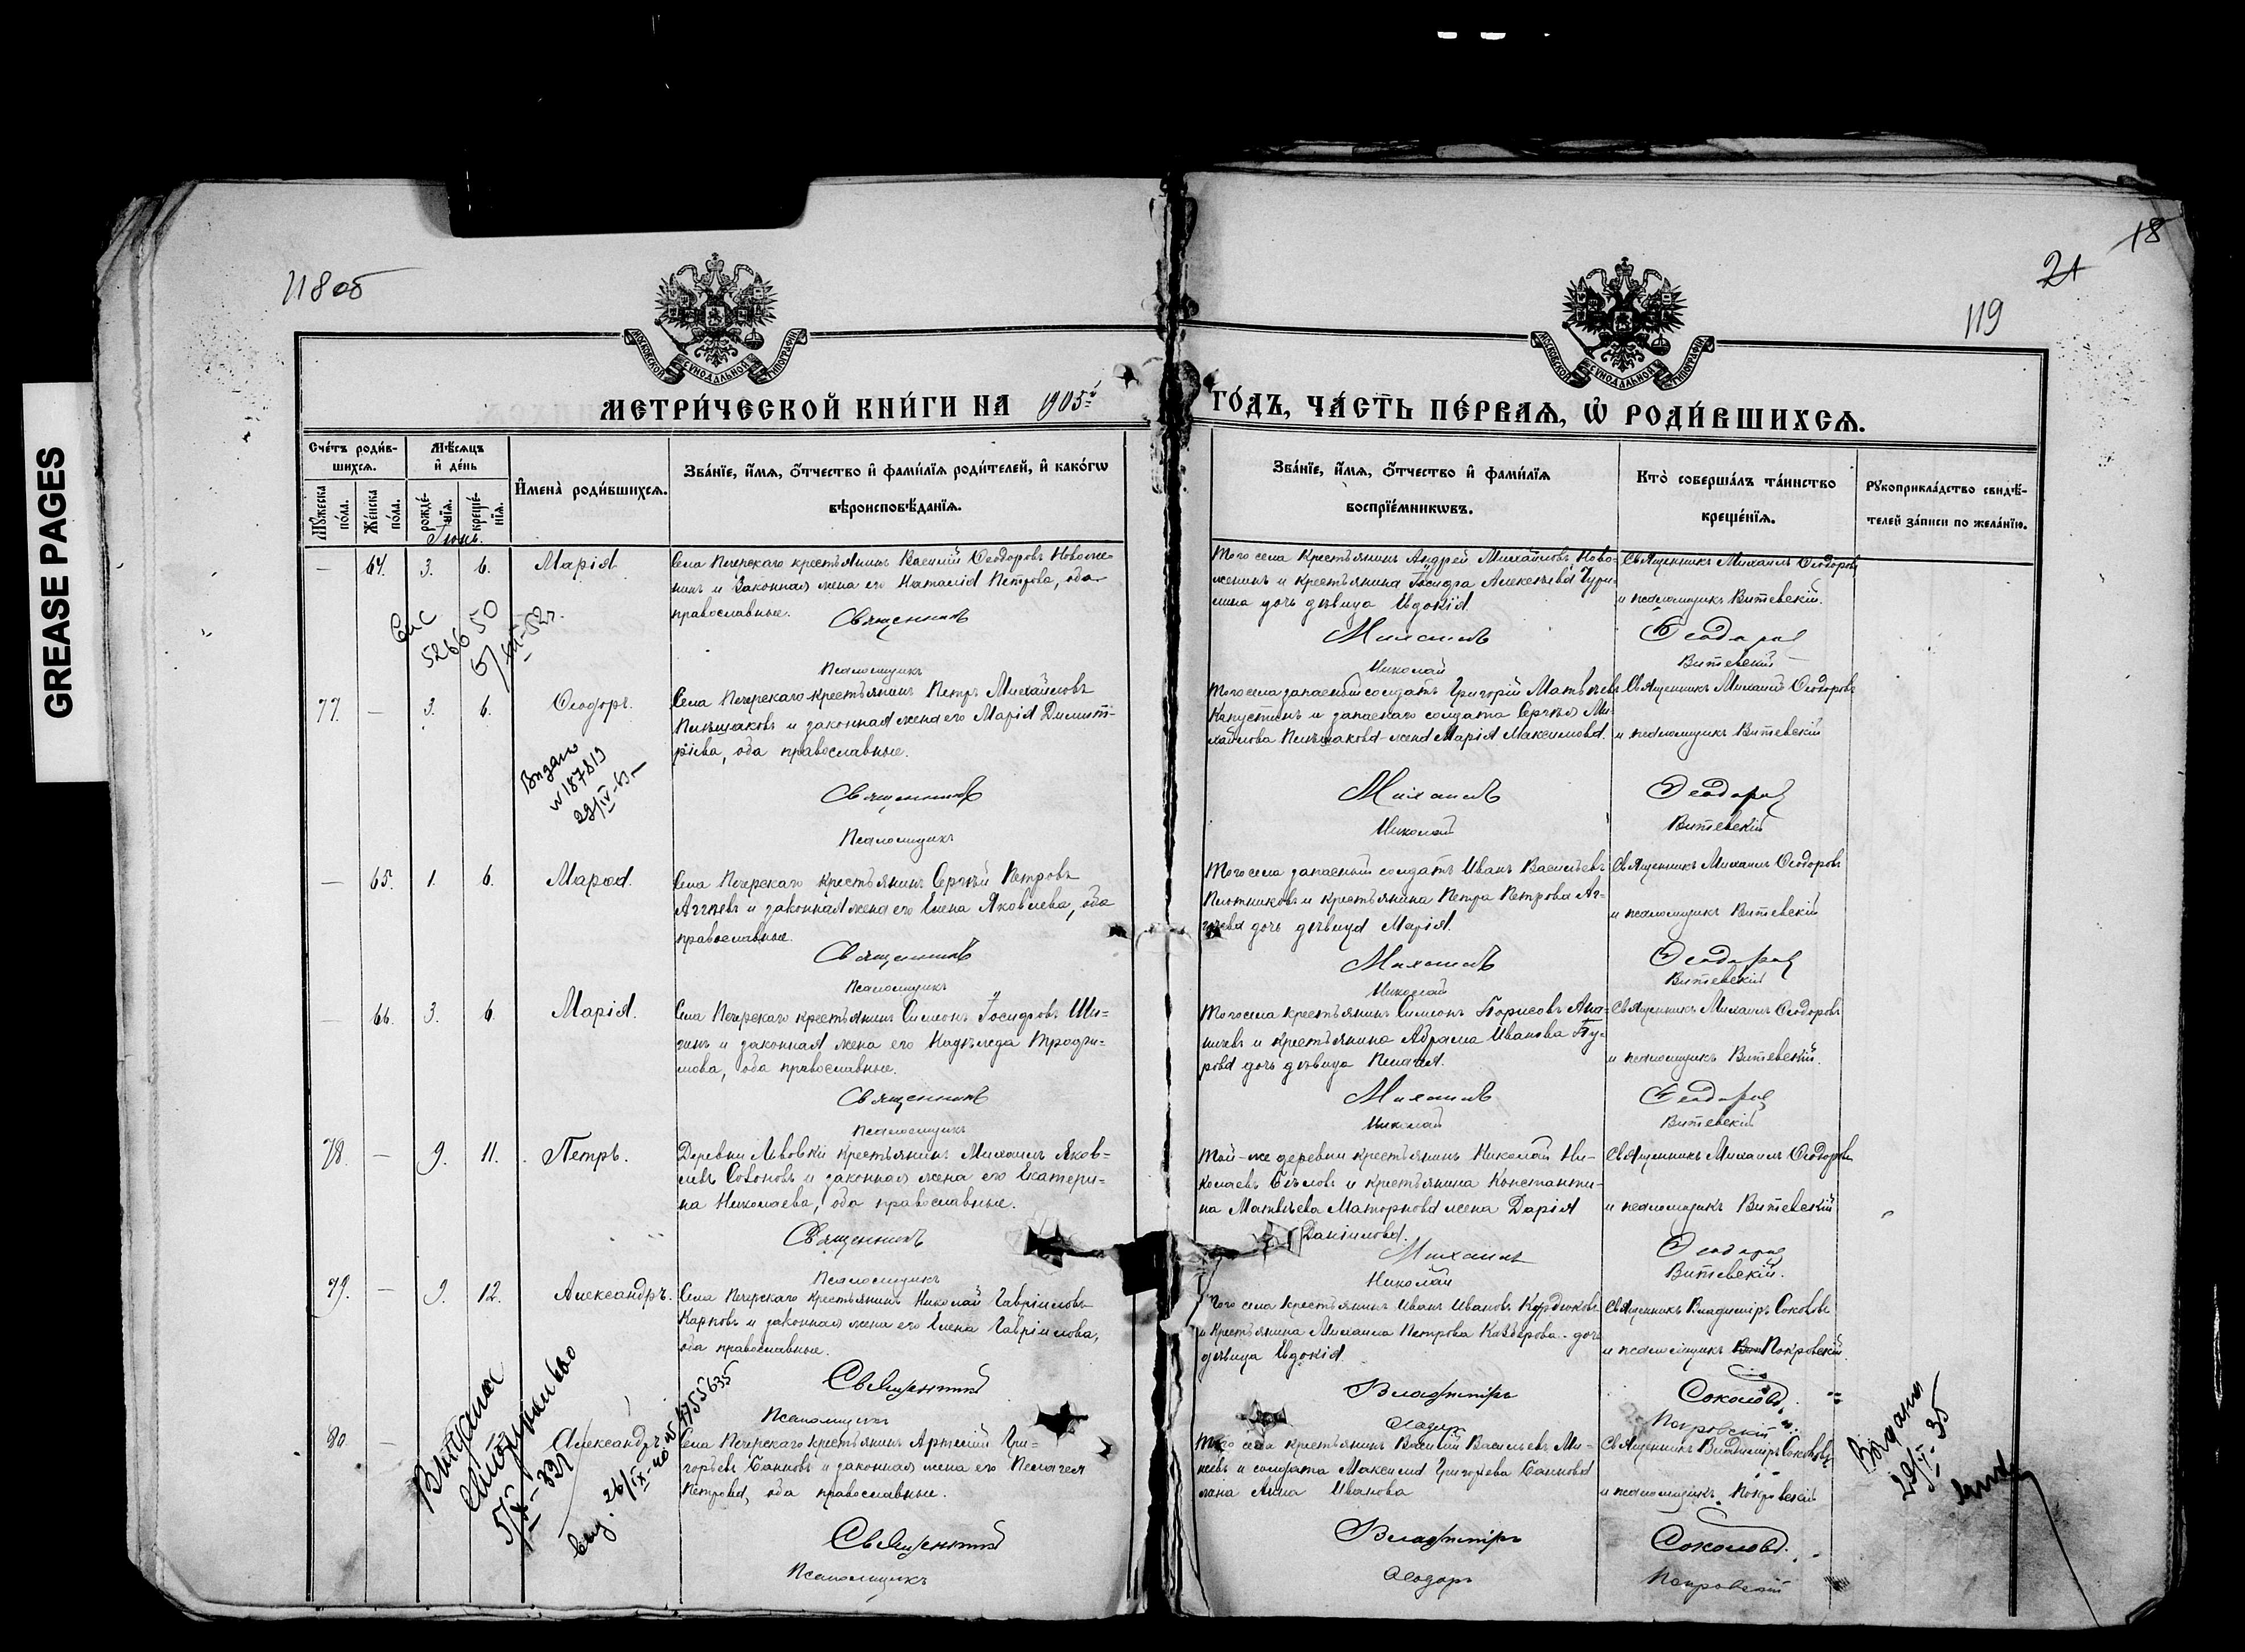 GREASE PAGES
118 об
18
21
119
МОСКОВСКОЙ СѴНОДАЛЬНОЙ ТИПОГРАФІИ
МОСКОВСКОЙ СѴНОДАЛЬНОЙ ТИПОГРАФІИ
МЕТРИ́ЧЕСКОЙ КНИ́ГИ НА 1905й
ГО́ДЪ, ЧА́СТЬ ПЕ́РВАѦ, Ѡ РОДИ́ВШИХСѦ.
Сче́тъ роди́в-
шихсѧ.
Мѣ́сѧцъ
и҆ де́нь
Мꙋ́жеска по́ла.
Же́нска по́ла.
рожде́-нїѧ.
креще́-нїѧ.
И҆мена̀ роди́вшихсѧ.
Зва́нїе, и҆́мѧ, ѻ҆́тчество и҆ фами́лїѧ роди́телей, и҆ како́гѡ
вѣроисповѣ́данїѧ.
Зва́нїе, и҆́мѧ, ѻ҆́тчество и҆ фами́лїѧ
воспрїе́мникѡвъ.
Кто̀ соверша́лъ та́инство
креще́нїѧ.
Рꙋкоприкла́дство свидѣ́-
телей за́писи по жела́нїю.
Іюнь.
— 64. 3. 6. Марія
Села Печерскаго крестьянинъ Василій Ѳеодоровъ Новоже-
нинъ и законная жена его Наталія Петрова, оба
православные.
Священникъ
Псаломщикъ
Того села крестьянинъ Андрей Михайловъ Ново-
женинъ и крестьянина Іосифа Алексѣева Чури-
лина дочь дѣвица Евдокія.
Михаилъ
Николай
Священникъ Михаилъ Ѳеодоровъ
и псаломщикъ Витевскій.
Ѳеодоровъ
Витевскій
526650
77. — 3. 6. Ѳеодоръ.
Села Печерскаго крестьянинъ Петръ Михайловъ
Пильщаковъ и законная жена его Марія Димит-
ріева, оба православные.
Священникъ
Псаломщикъ
Того села запасный солдатъ Григорій Матвѣевъ
Капустинъ и запаснаго солдата Сергѣя Ми-
хайлова Пильщакова жена Марія Максимова.
Михаилъ
Николай
Священникъ Михаилъ Ѳеодоровъ
и псаломщикъ Витевскій
Ѳеодоровъ
Витевскій
Выдано
№ 187819
— 65. 1. 6. Марія.
Села Печерскаго крестьянинъ Сергѣй Петровъ
Аггѣевъ и законная жена его Елена Яковлева, оба
православные.
Священникъ
Псаломщикъ
Того села запасный солдатъ Иванъ Васильевъ
Плотниковъ и крестьянина Петра Петрова Аг-
гѣева дочь дѣвица Марія.
Михаилъ
Николай
Священникъ Михаилъ Ѳеодоровъ
и псаломщикъ Витевскій
Ѳеодоровъ
Витевскій
— 66. 3. 6. Марія.
Села Печерскаго крестьянинъ Симеонъ Іосифовъ Ши-
гинъ и законная жена его Надежда Трофи-
мова, оба православные.
Священникъ
Псаломщикъ
Того села крестьянинъ Симеонъ Борисовъ Ана-
ничевъ и крестьянина Абрама Иванова Бу-
рова дочь дѣвица Пелагея.
Михаилъ
Николай
Священникъ Михаилъ Ѳеодоровъ
и псаломщикъ Витевскій.
Ѳеодоровъ
Витевскій
78. — 9. 11. Петръ.
Деревни Львовки крестьянинъ Михаилъ Яков-
левъ Софоновъ и законная жена его Екатери-
на Николаева, оба православные.
Священникъ
Псаломщикъ
Той-же деревни крестьянинъ Николай Ни-
колаевъ Бѣловъ и крестьянина Константи-
на Матвѣева Маторнова жена Дарія
Даніилова.
Михаилъ
Николай
Священникъ Михаилъ Ѳеодоровъ
и псаломщикъ Витевскій
Ѳеодоровъ
Витевскій.
79. — 9. 12. Александръ.
Села Печерскаго крестьянинъ Николай Гавріиловъ
Карповъ и законная жена его Елена Гавріилова,
оба православные.
Священникъ
Псаломщикъ
Того села крестьянинъ Иванъ Ивановъ Кордюковъ
и крестьянина Михаила Петрова дочь
дѣвица Евдокія.
Владиміръ
Ѳеодоръ
Священникъ Владиміръ Соколовъ
и псаломщикъ Покровскій
Соколовъ.
Покровскій
80. — Александръ
Села Печерскаго крестьянинъ Артемій Гри-
горьевъ Банновъ и законная жена его Пелагея
Петрова, оба православные.
Священникъ
Псаломщикъ
Того села крестьянинъ Василій Васильевъ Ми-
неевъ и солдата Максима Григорьева Баннова
жена Анна Иванова
Владиміръ
Ѳеодоръ
Священникъ Владиміръ Соколовъ
и псаломщикъ Покровскій
Соколовъ.
Покровскій
Выдана
5/IX-33г
26/IX-40
Выдано